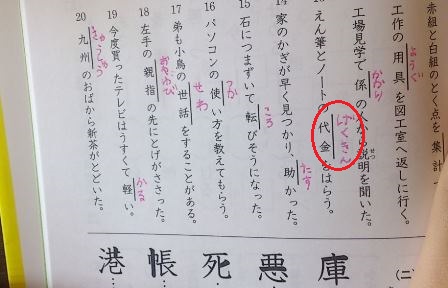 赤組と白組のとく点を集計
工作の用具を図工室へ返しに行く。
ようぐ
工場見学で係の人から説明を聞いた。
かかり
せつ
えん筆とノートの代金をはらう。
げくきん
14 家のかぎが早く見つかり、助かった。
たす
15 石につまずいて転びそうになった。
ころ
16 パソコンの使い方を教えてもらう。
つか
17 弟も小鳥の世話をすることがある。
せわ
18 左手の親指の先にとげがささった。
おやゆび
19 今度買ったテレビはうすくて軽い。
かる
20 九州のおばから新茶がとどいた。
きゅうしゅう
(二)
庫
悪
死…
帳…
港…